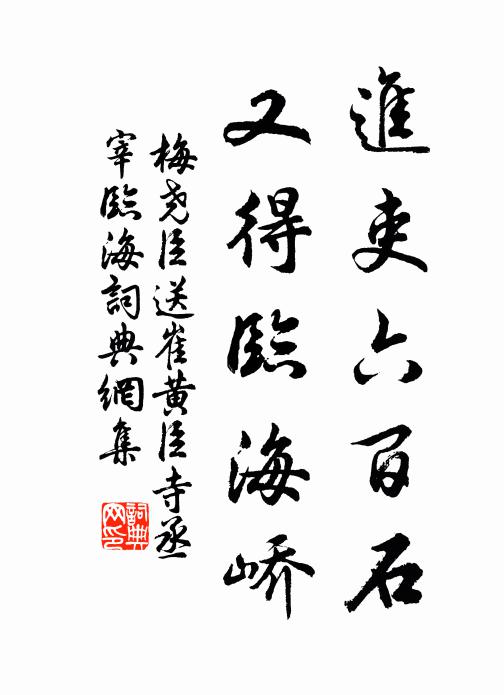 進吏六百石
又得臨海嶠
梅堯臣送崔黄臣寺丞
宰臨海詞典網集
詞典网印